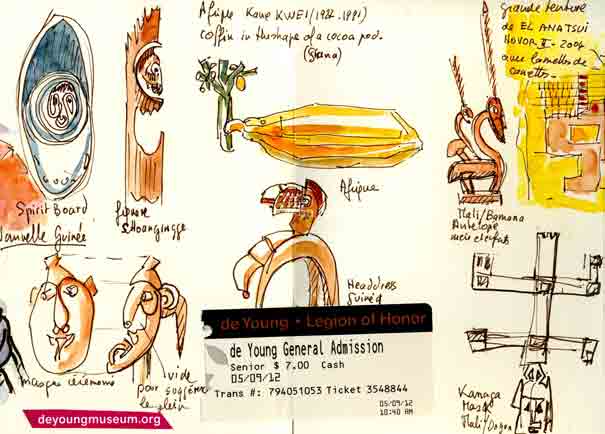 Afrique Kane KWEI (1922-1991)
coffin in the shape of a cocoa pod.
(Ghana)
grande tenture
de EL ANATSUI
HOVOR II - 2004
avec lamelles de
canettes.
Spirit Board
Nouvelle Guinée
figure
Afrique
Headdress
Guinea
Mali/Bamana
Antelope
masque cérémonie
vide
pour suggérer
le plein
Kanaga
Mask
Mali/Dogon
de Young • Legion of Honor
de Young General Admission
Senior $ 7.00 Cash
05/09/12
Trans #: 794051053 Ticket 3548844
05/09/12
10:40 AM
deyoungmuseum.org